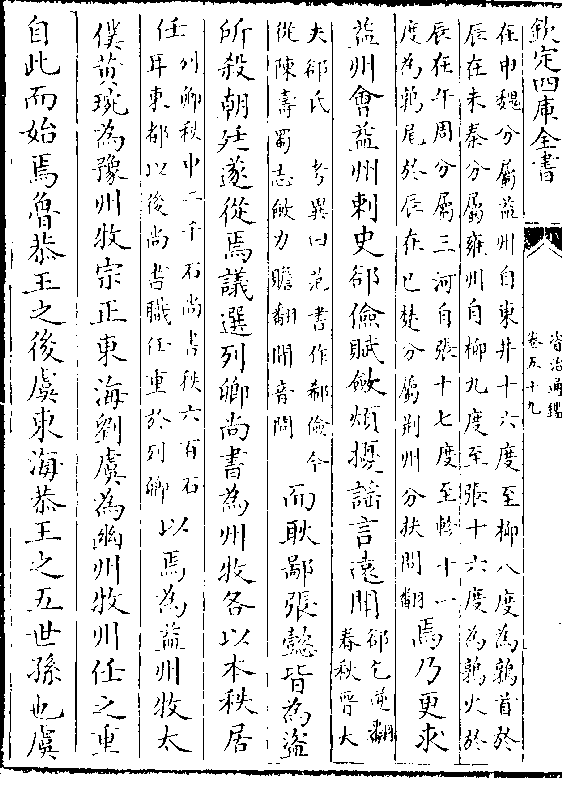 欽定四庫全書
資治通鑑
卷五十九
在申魏分屬益州自東井十六度至柳八度為鶉首於
辰在未秦分屬雍州自柳九度至張十六度為鶉火於
辰在午周分屬三河自張十七度至軫十一
度為鶉尾於辰在巳楚分屬荆州分扶問翻
焉乃更求
益州會益州刺史郤儉賦斂煩擾謡言遠聞
郤乞逆翻
春秋晉大
夫郤氏 考異曰范書作郗儉今
從陳壽蜀志斂力贍翻聞音問
而耿鄙張懿皆為盜
所殺朝廷遂從焉議選列卿尚書為州牧各以本秩居
任
列卿秩中二千石尚書秩六百石
耳東都以後尚書職任重於列卿
以焉為益州牧太
僕黄琬為豫州牧宗正東海劉虞為幽州牧州任之重
自此而始焉魯恭王之後虞東海恭王之五世孫也虞